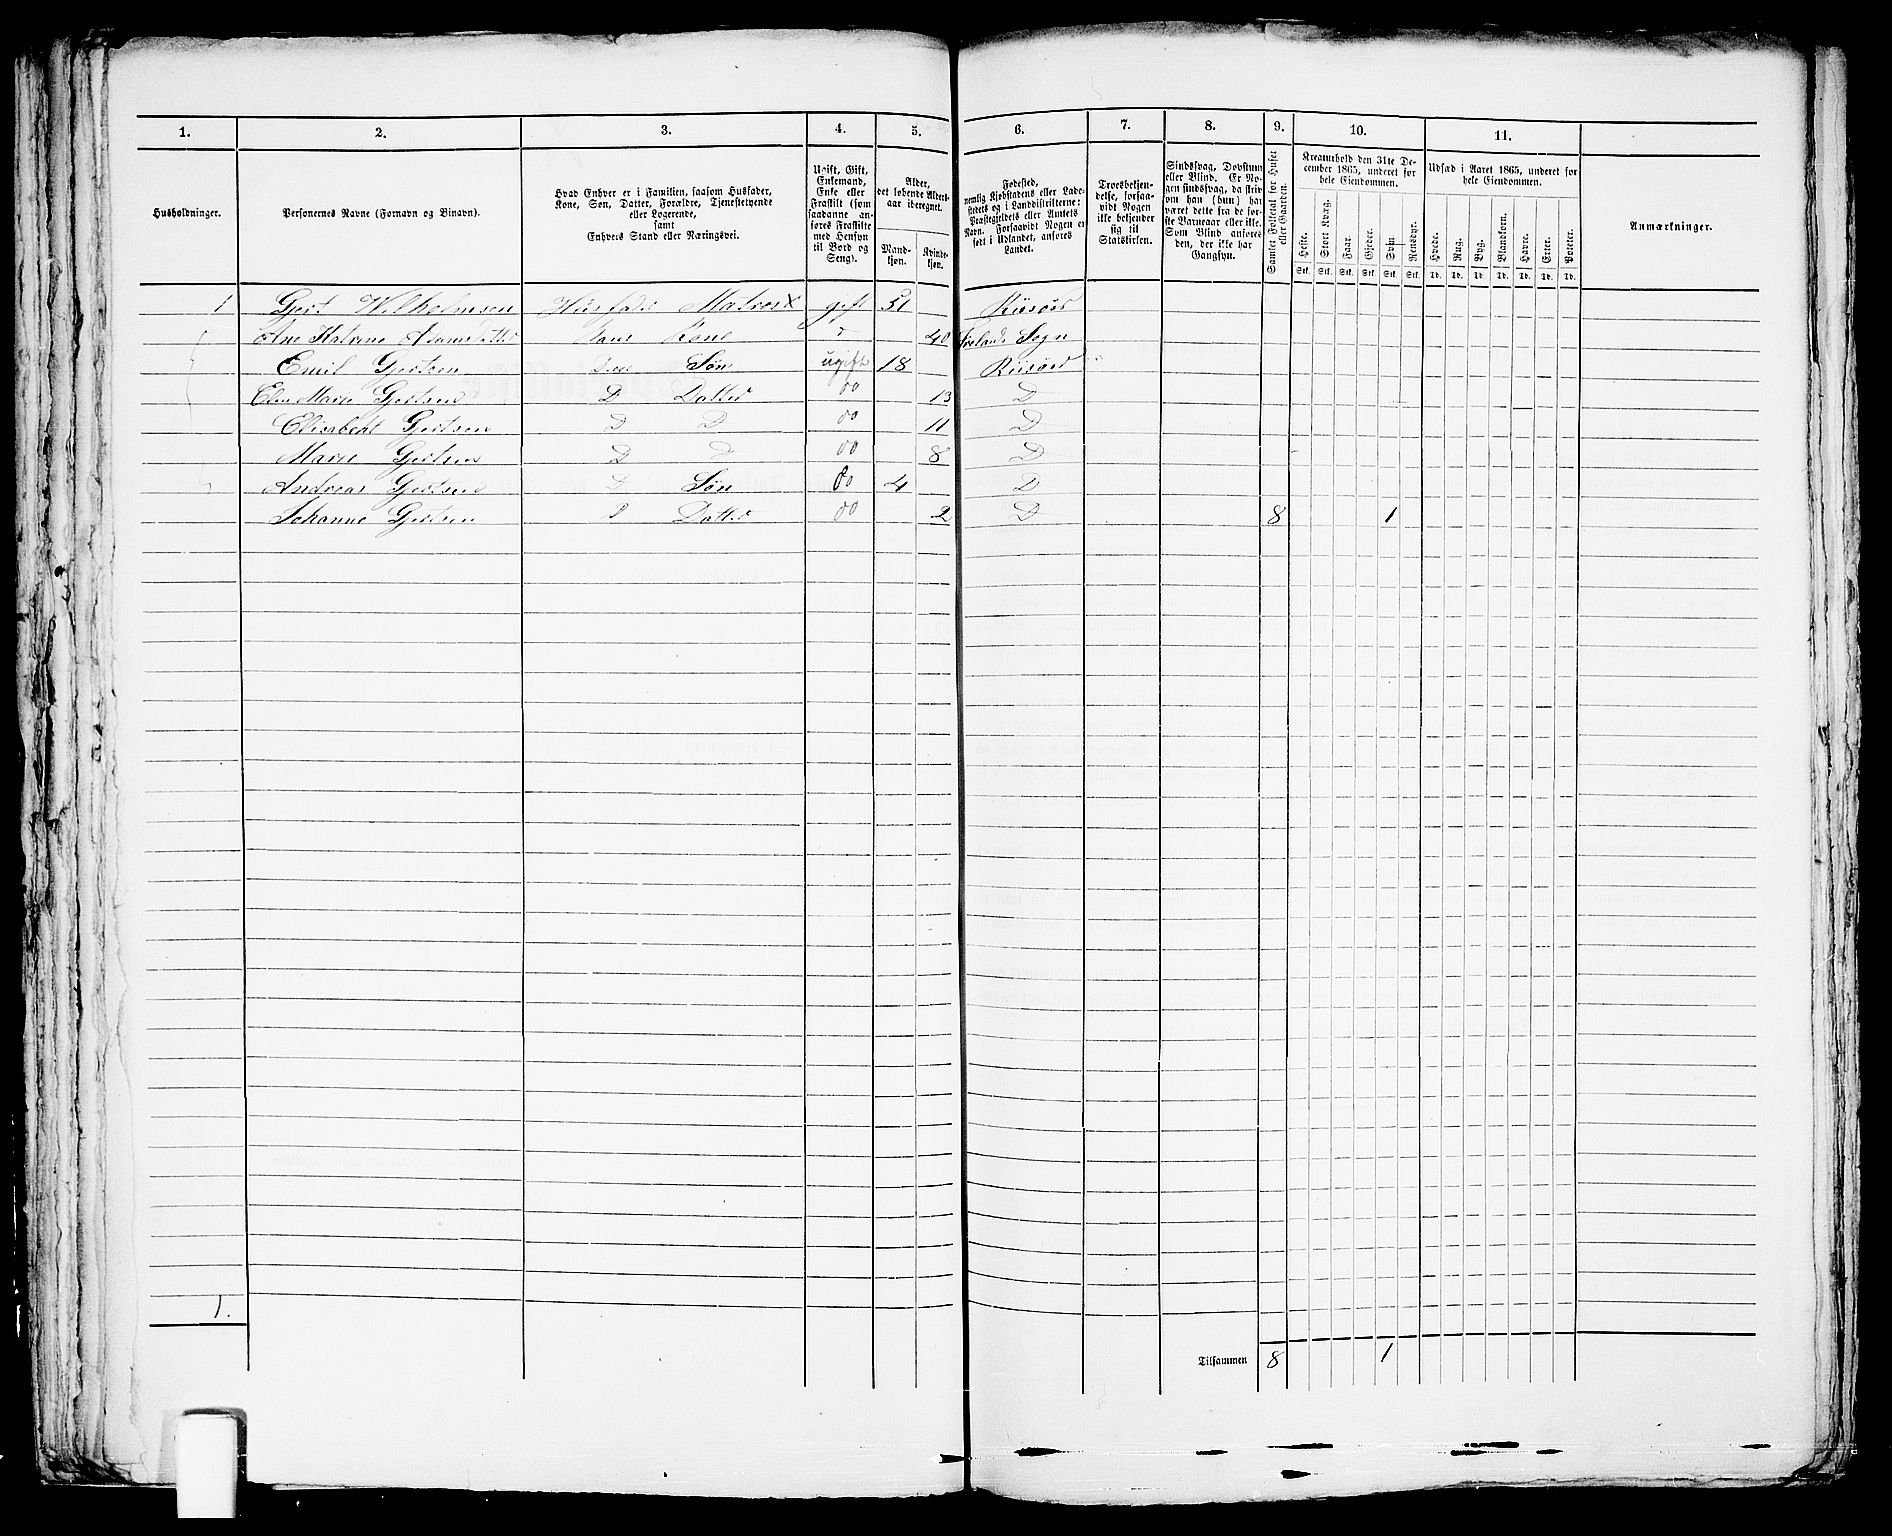 1. 2. 3. 4. 5. 6. 7. 8. 9. 10. 11.
Husholdninger.
Personernes Navne (Fornavn og Binavn).
Hvad Enhver er i Familien, saasom Husfader,
Kone, Søn, Datter, Forældre, Tjenestetyende
eller Logerende,
samt
Enhvers Stand eller Næringsvei.
Ugift, Gift,
Enkemand,
Enke eller
Fraskilt (som
saadanne an-
føres Fraskilte
med Hensyn
til Bord og
Seng).
Alder,
det løbende Alders-
aar iberegnet.
Mand-
kjøn.
Kvinde-
kjøn.
Fødested,
nemlig Kjøbstadens eller Lade-
stedets og i Landdistrikterne:
Præstegjeldets eller Amtets
Navn. Forsaavidt Nogen er
født i Udlandet, anføres
Landet.
Troesbekjen-
delse, forsaa-
vidt Nogen
ikke bekjender
sig til
Statskirken.
Sindssvag, Døvstum
eller Blind. Er No-
gen sindssvag, da skriv
om han (hun) har
været dette fra de før-
ste Barneaar eller ikke.
Som Blind anføres
den, der ikke har
Gangsyn.
Samlet Folketal for Huset
eller Gaarden.
Kreaturhold den 31te De-
cember 1865, underet for
hele Eiendommen.
Heste. Stort Kvæg. Faar. Gjeder. Svin. Rensdyr.
Stk. Stk. Stk. Stk. Stk. Stk.
Udsæd i Aaret 1865, underet for
hele Eiendommen.
Hvede. Rug. Byg. Blandkorn. Havre. Erter. Poteter.
Td. Td. Td. Td. Td. Td. Td.
Anmærkninger.
1 Gjert Wilhelmsen Husfader Matros gift 51 Riisøer
Ane Katrine Adamsdatter Hans Kone 40 Sogn
Emil Gjertsen Søn ugift 18 Riisøer
Elen Marie Gjertsen D Datter 13 D
Elisabeth Gjertsen D D 11 D
Marie Gjertsen D D 8 D
Andreas Gjertsen D Søn 4 D
Johanne Gjertsen D Datter 2 D 8 1
1.
Tilsammen 8 1